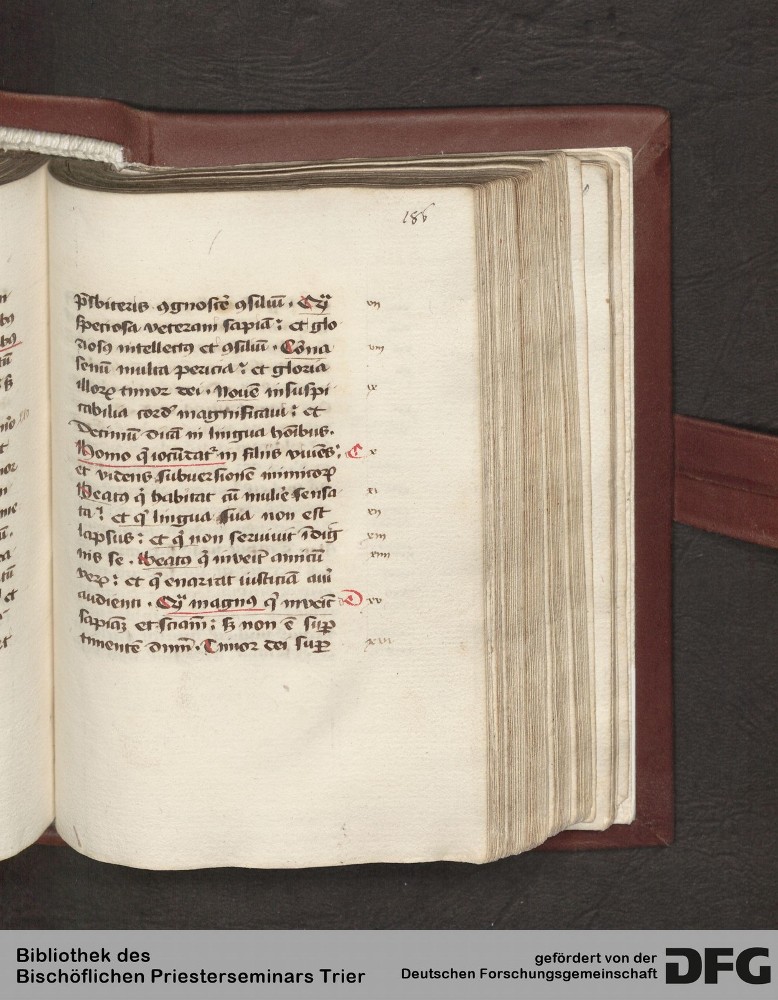 186
p̄sbiteris ꝯgnosce͂ ꝯsiliu͂. Qꝫ vii
speciosa veteram sapia͂ : et glo
riosꝰ intellectꝰ et ꝯsiliu͂. Corona viii
senu͂ multa pericia : et gloria
illoꝝ timor dei. Nouem̄ insuspi ix
cabilia cord̕ magnificaui : et
Decimu͂ dica͂ in lingua ho͂ibus.
Homo q̇ iocu͂dat᷑ in filiis viue͂s : C x
et videns subuersione͂ inimicoꝝ
Beatꝰ q̇ habitat cu͂ mulie̕ sensa xi
ta : et q̇ lingua sua non est xii
lapsus : et q̇ non seruiuit i͂dig xiii
nis se. Beatꝰ q̇ inveit amicu͂ xiiii
veꝝ : et q̇ enarrat iusticia͂ auri
audienti. Qꝫ magnꝰ q̇ inveit D xv
sapia͂ et scia͂ : sꝫ non e͂ suꝑ
timente͂ dnm̄. Timor dei suꝑ xvi
Bibliothek des
Bischöflichen Priesterseminars Trier
gefördert von der
Deutschen Forschungsgemeinschaft
DFG